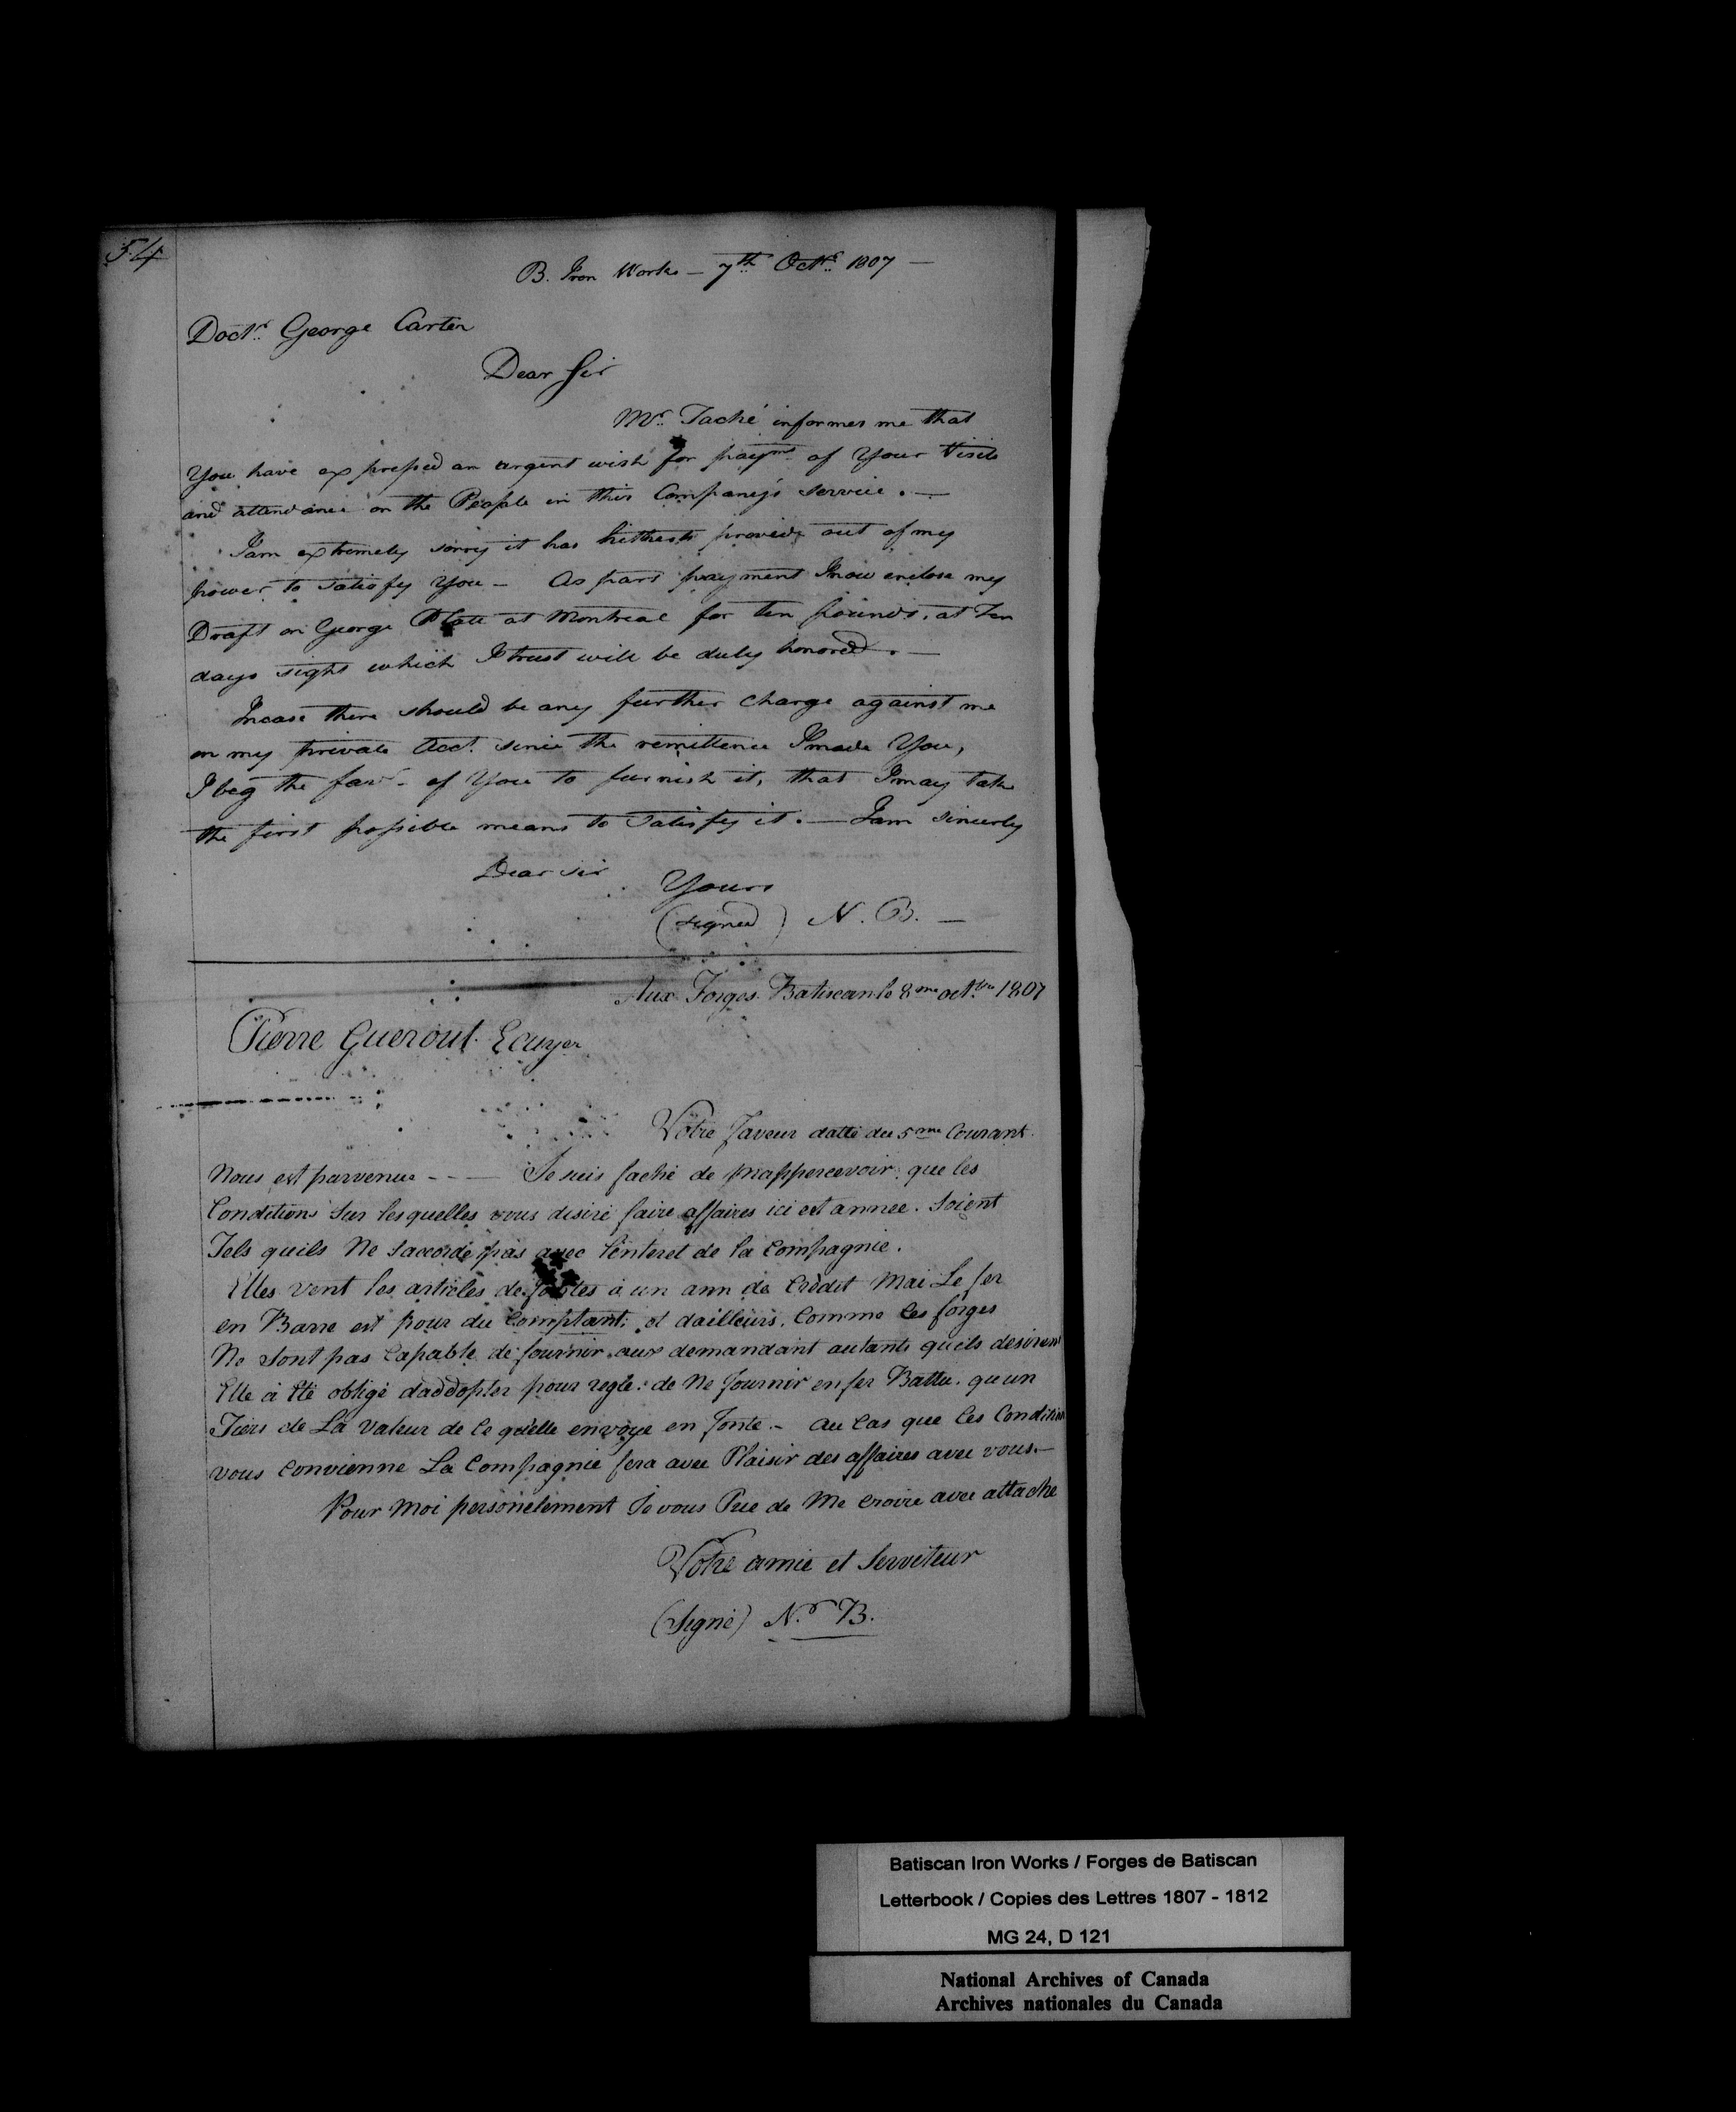 54
B. Iron Works — 7th Octr 1807 —
Doctr. George Carter
Dear Sir
Mr. Taché informes me that
You have expressed an urgent wish for paymt of Your Visits
and attendance on the People in this Company's service. —
I am extremely sorry it has hitherto proved out of my
power to satisfy You — As part payment I now enclose my
Draft on George Platt at Montreal for ten pounds, at Ten
days sight which I trust will be duly honored. —
Incase there should be any further charge against me
on my private Acct. since the remittence I made You,
I beg the favr. of You to furnish it, that I may take
the first possible means to satisfy it. — I am sincerly
Dear Sir
Yours
(signed) N. B. —
Aux Forges Batiscan le 8me octbre 1807
Pierre Guerout Ecuyer
Votre faveur datté du 5me Courant
Nous est parvenue - - — Je suis faché de m'appercevoir que les
Conditions sur lesquelles vous desiré faire affaires ici cet annee. Soient
Tels quils Ne saccorde pas avec l'enteret de la Compagnie.
Elles vent les articles de fontes à un ann de Crèdit Mai Le fer
en Barre est pour du Comptant; et dailleurs, Comme les forges
Ne sont pas Capable de fournir aux demandant autants quils desirent
Elle à Eté obligé daddopter pour regle: de Ne fournir en fer Battu. qu un
Tiers de La valeur de Ce quelle envoye en fonte. — au Cas que Ces Condition
vous Convienne La Compagnie fera avec Plaisir des affaires avec vous. —
Pour Moi personelement Je vous Prie de Me Croire avec attache
Votre amie et Serviteur
(Signé) N. B.
Batiscan Iron Works / Forges de Batiscan
Letterbook / Copies des Lettres 1807 - 1812
MG 24, D 121
National Archives of Canada
Archives nationales du Canada